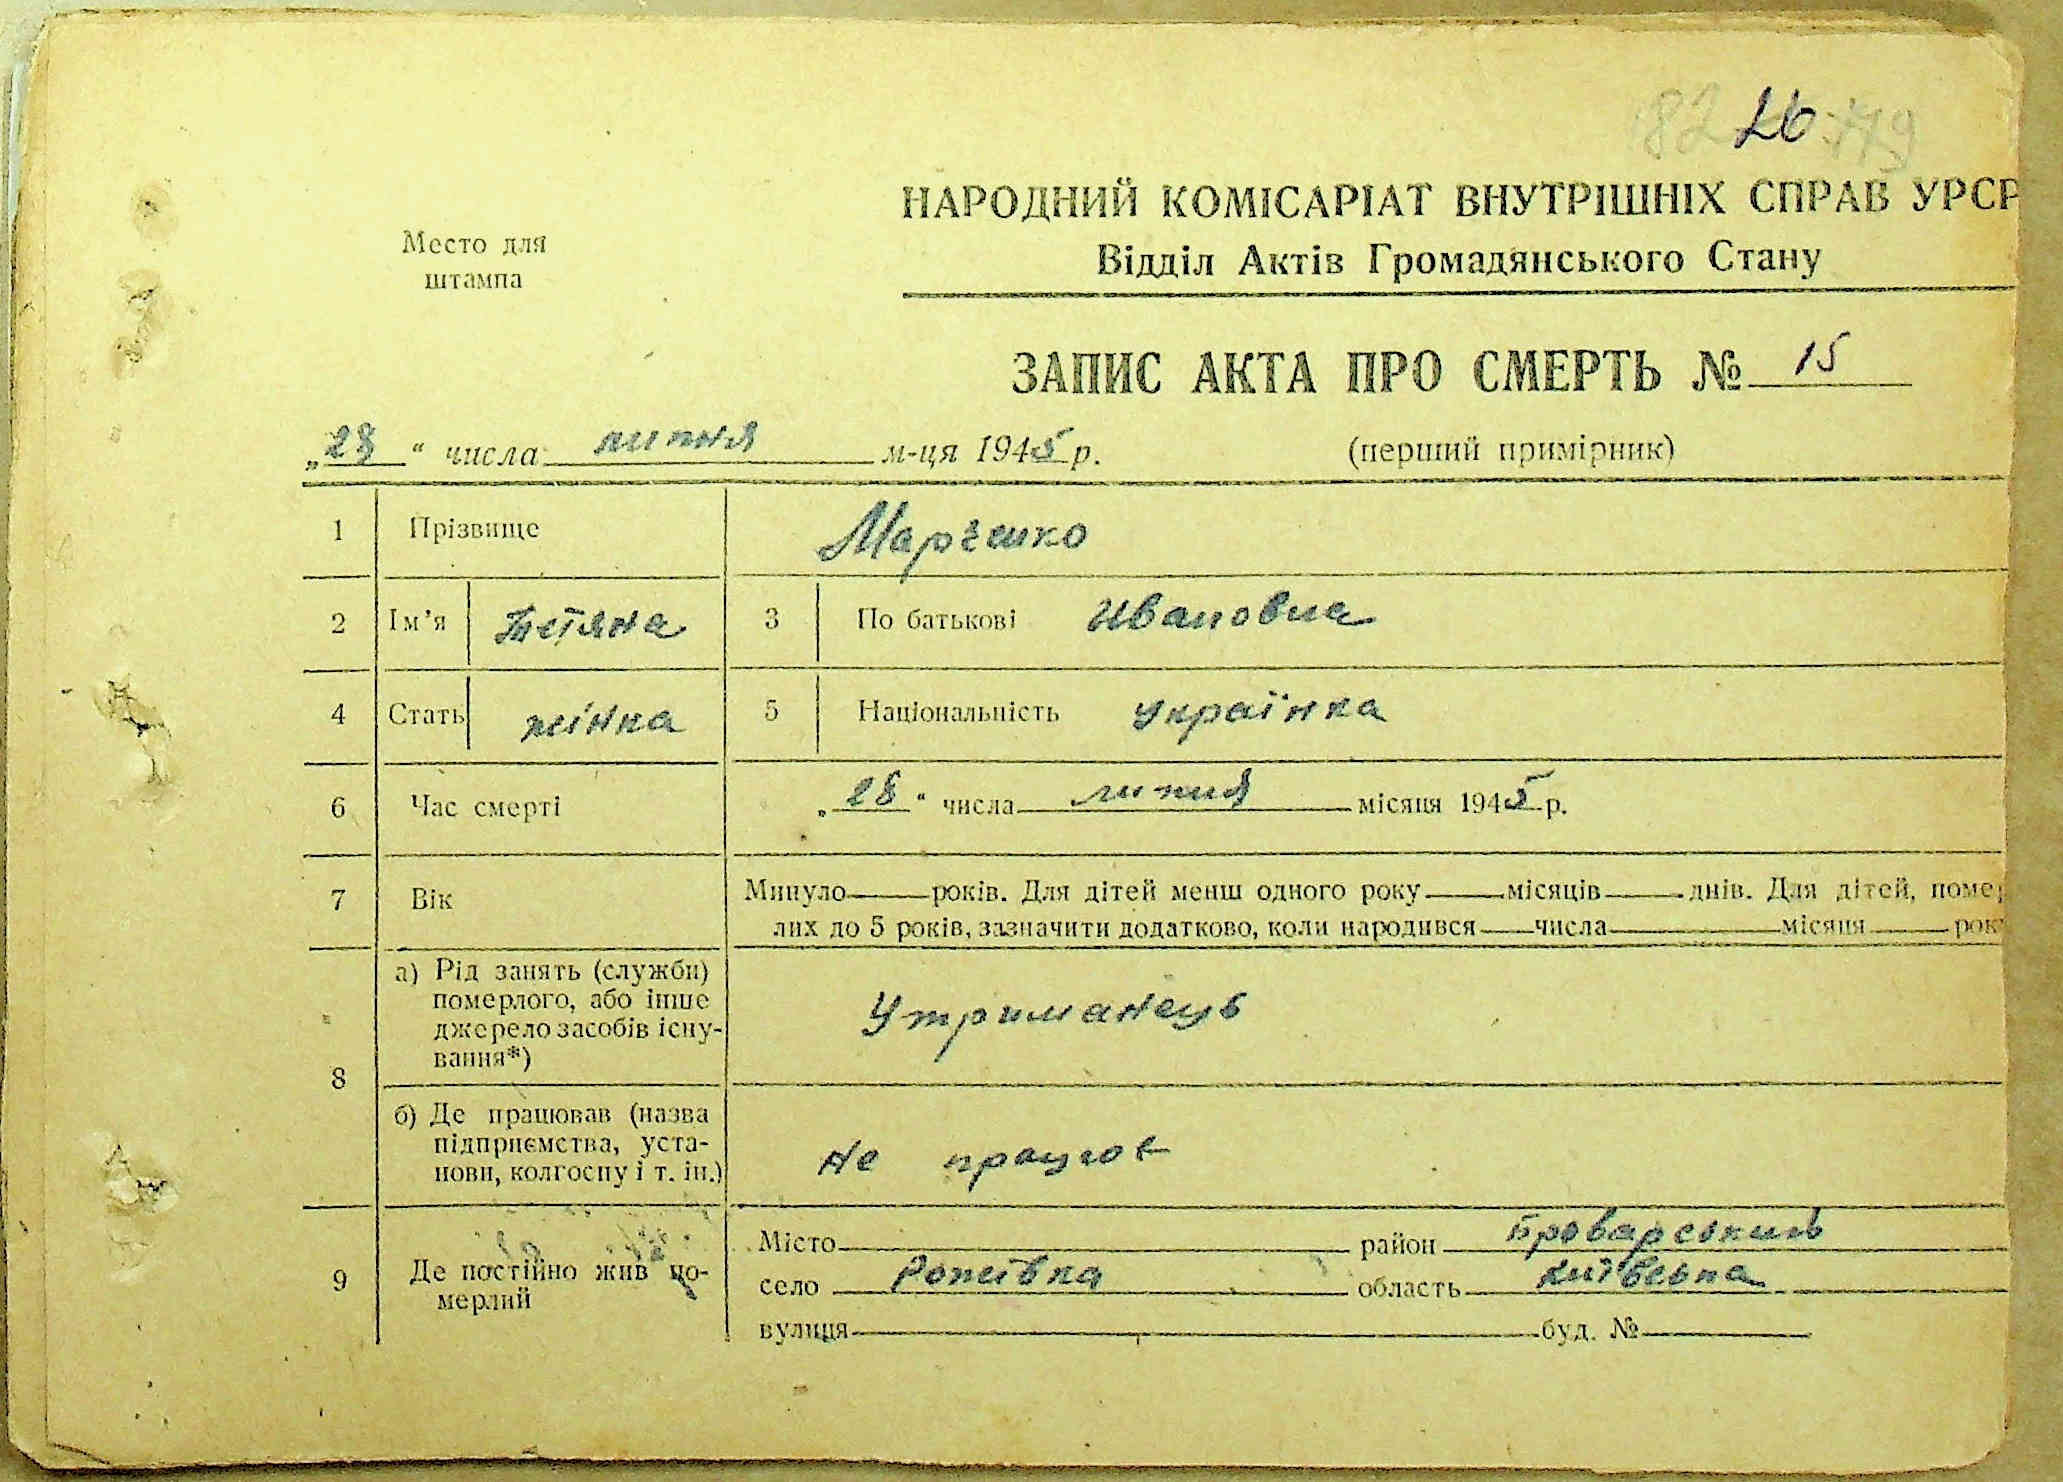 26
Место для
штампа
НАРОДНИЙ КОМІСАРІАТ ВНУТРІШНІХ СПРАВ УРСР
Відділ Актів Громадянського Стану
ЗАПИС АКТА ПРО СМЕРТЬ № 15
„28“ числа липня м-ця 1945 р. (перший примірник)
1 Прізвище Марченко
2 Ім’я Тетяна 3 По батькові Ивановна
4 Стать жінка 5 Національність українка
6 Час смерті „28“ числа липня місяця 1945 р.
7 Вік Минуло року років. Для дітей менш одного року місяців днів. Для дітей, помер
лих до 5 років, зазначити додатково, коли народився числа місяця рок
8 а) Рід занять (служби)
померлого, або інше
джерело засобів існу-
вання*) Утриманець
б) Де працював (назва
підприємства, уста-
нови, колгоспу і т. ін.) не працює
9 Де постійно жив по-
мерлий
Місто район Броварський
село область Київська
вулиця буд. №